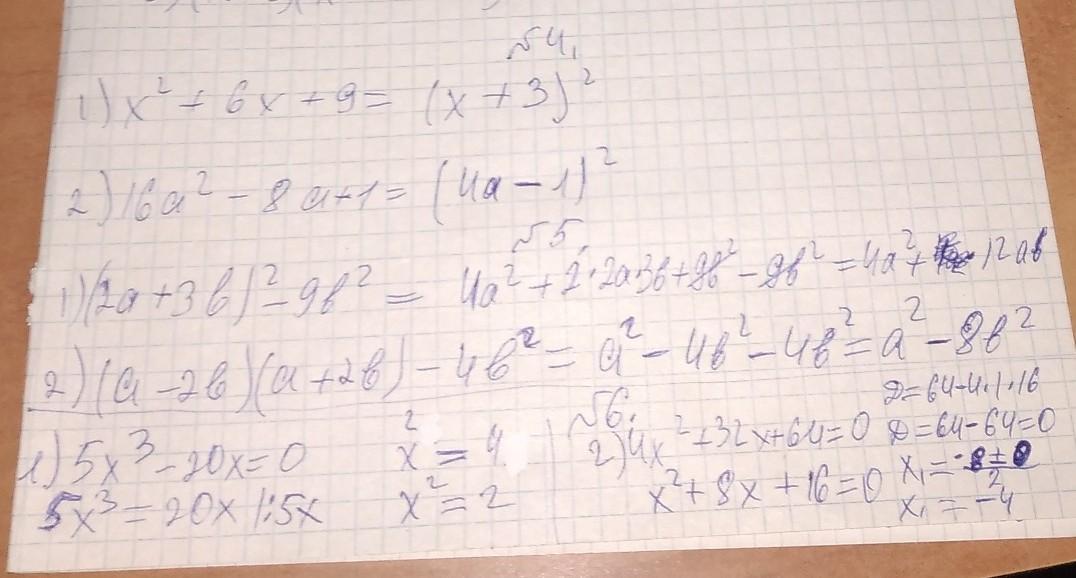 №4.
1) x² + 6x + 9 = (x + 3)²
2) 16a² - 8a + 1 = (4a - 1)²
№5.
1) (2a + 3b)² - 9b² = 4a² + 2·2a·3b + 9b² - 9b² = 4a² + 12ab
2) (a - 2b)(a + 2b) - 4b² = a² - 4b² - 4b² = a² - 8b²
№6.
1) 5x³ - 20x = 0
5x³ = 20x |:5x
x² = 4
x² = 2
2) 4x² + 32x + 64 = 0
x² + 8x + 16 = 0
D = 64 - 4·1·16
D = 64 - 64 = 0
x₁ = -8±0/2
x₁ = -4